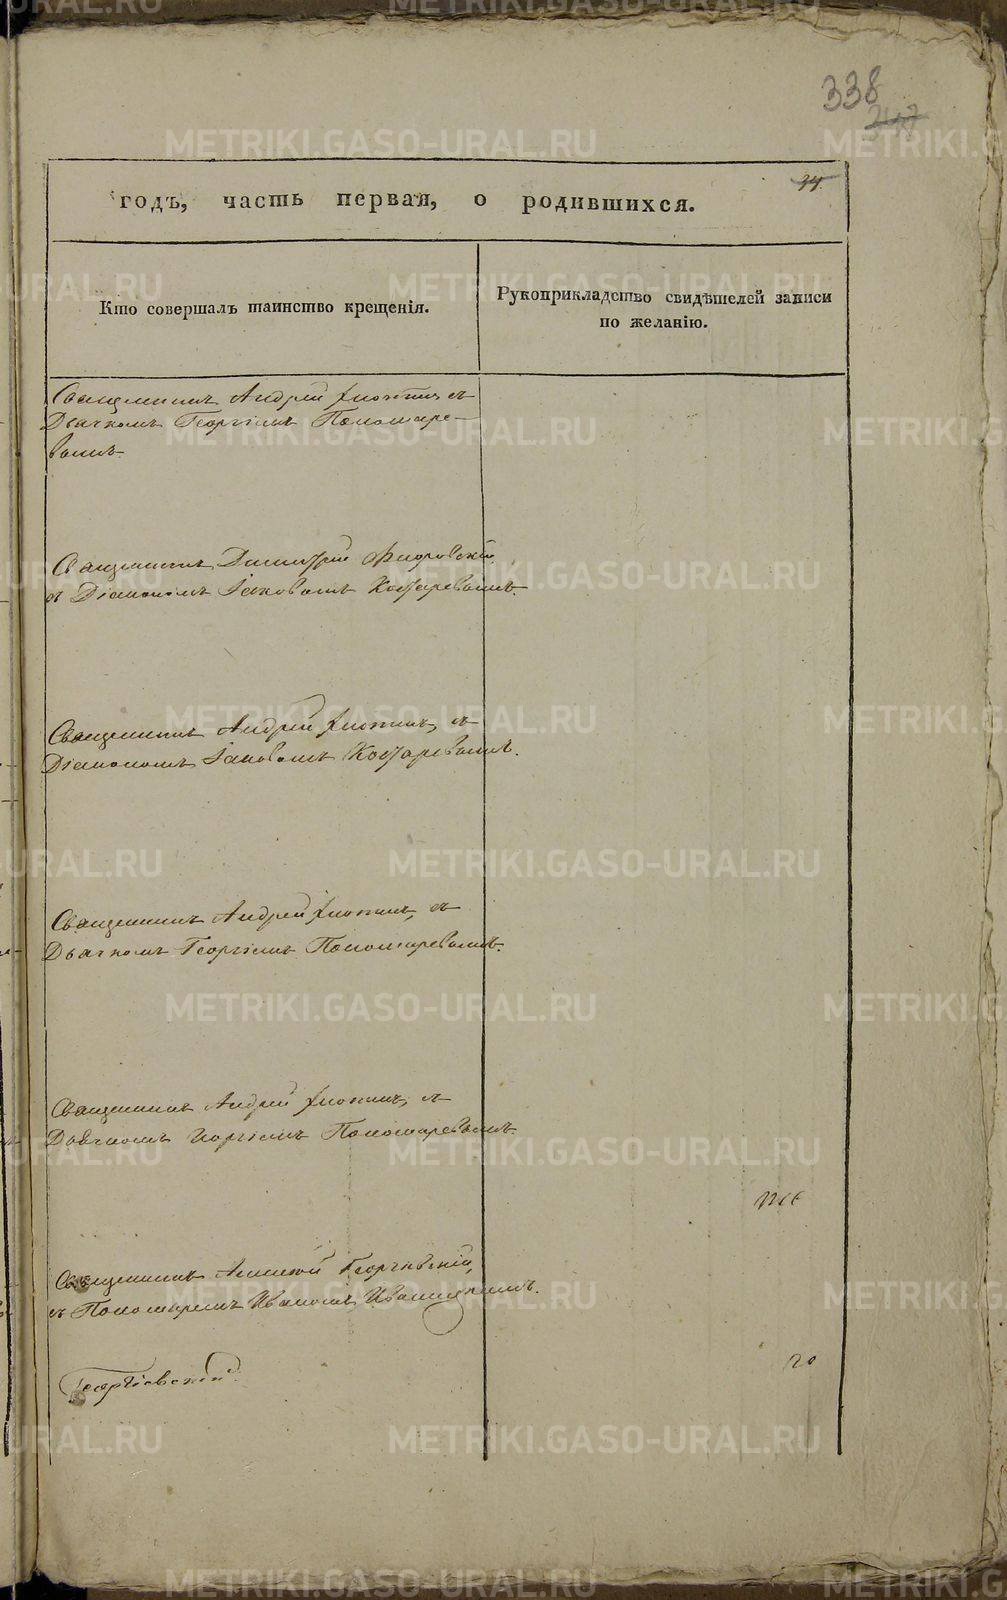 338
годъ, часть первая, о родившихся.
Кто совершалъ таинство крещенія.
Рукоприкладство свидѣтелей записи
по желанію.
Священникъ Андрей съ
Дьячкомъ Георгіемъ Пономаре-
вымъ.
Священникъ Димитрій Флоровскій
съ Діакономъ Іаковомъ Косаревымъ.
Священникъ Андрей съ
Діакономъ Іаковомъ Косаревымъ.
Священникъ Андрей съ
Дьячкомъ Георгіемъ Пономаревымъ.
Священникъ Андрей съ
Дьячкомъ Пономаревымъ.
Священникъ Алексей Георгіевскій,
съ Пономаремъ Иваномъ
Георгіевскій
METRIKI.GASO-URAL.RU